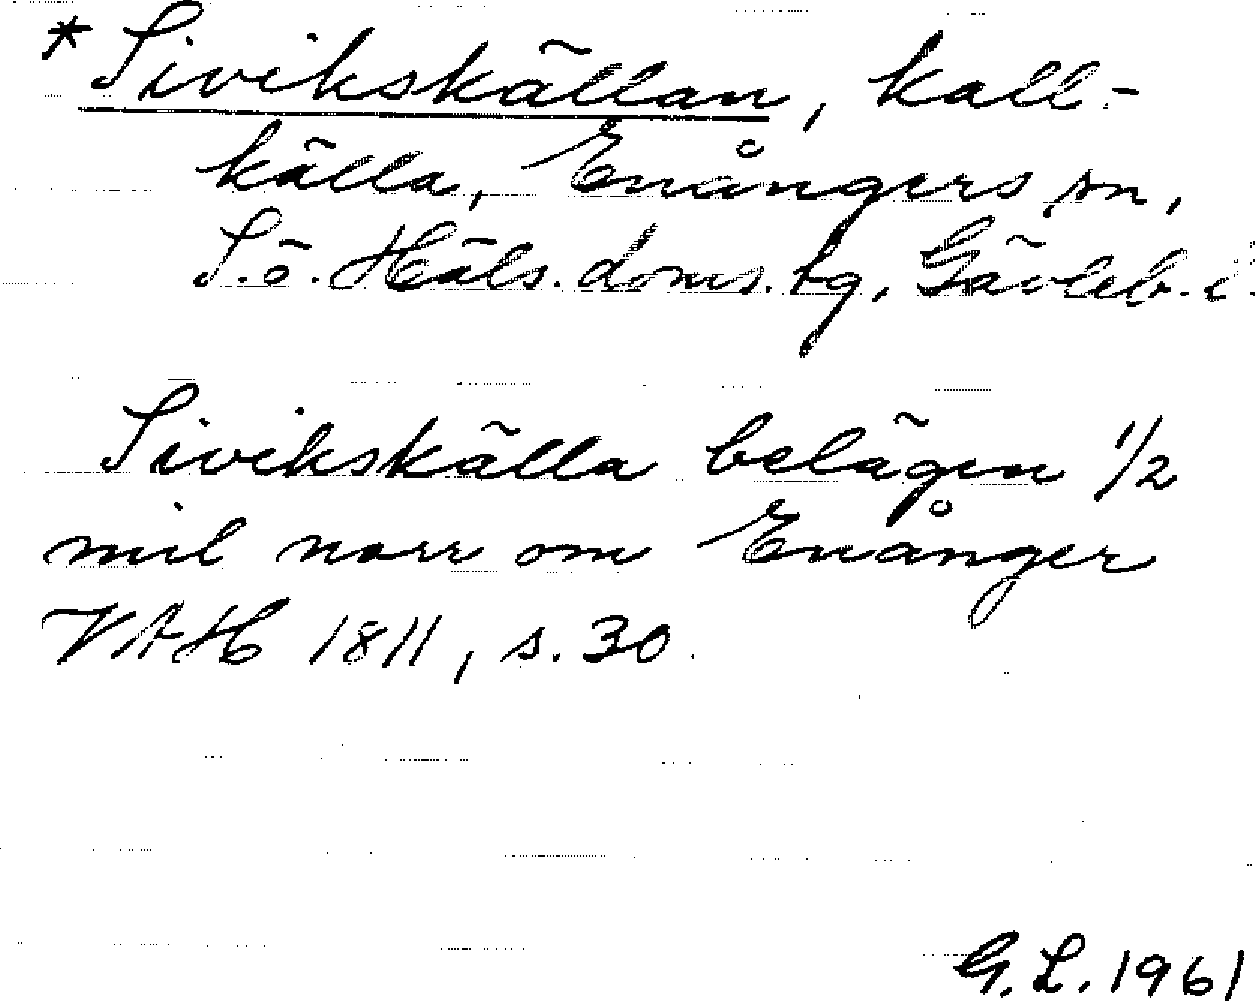 *Sivikskällan, kall-
källa, Enångers sn,
S.ö. Häls. doms. tg, Gävleb. l.
Sivikskälla belägen 1/2
mil norr om Enånger
VAH 1811, s. 30.
G.L. 1961